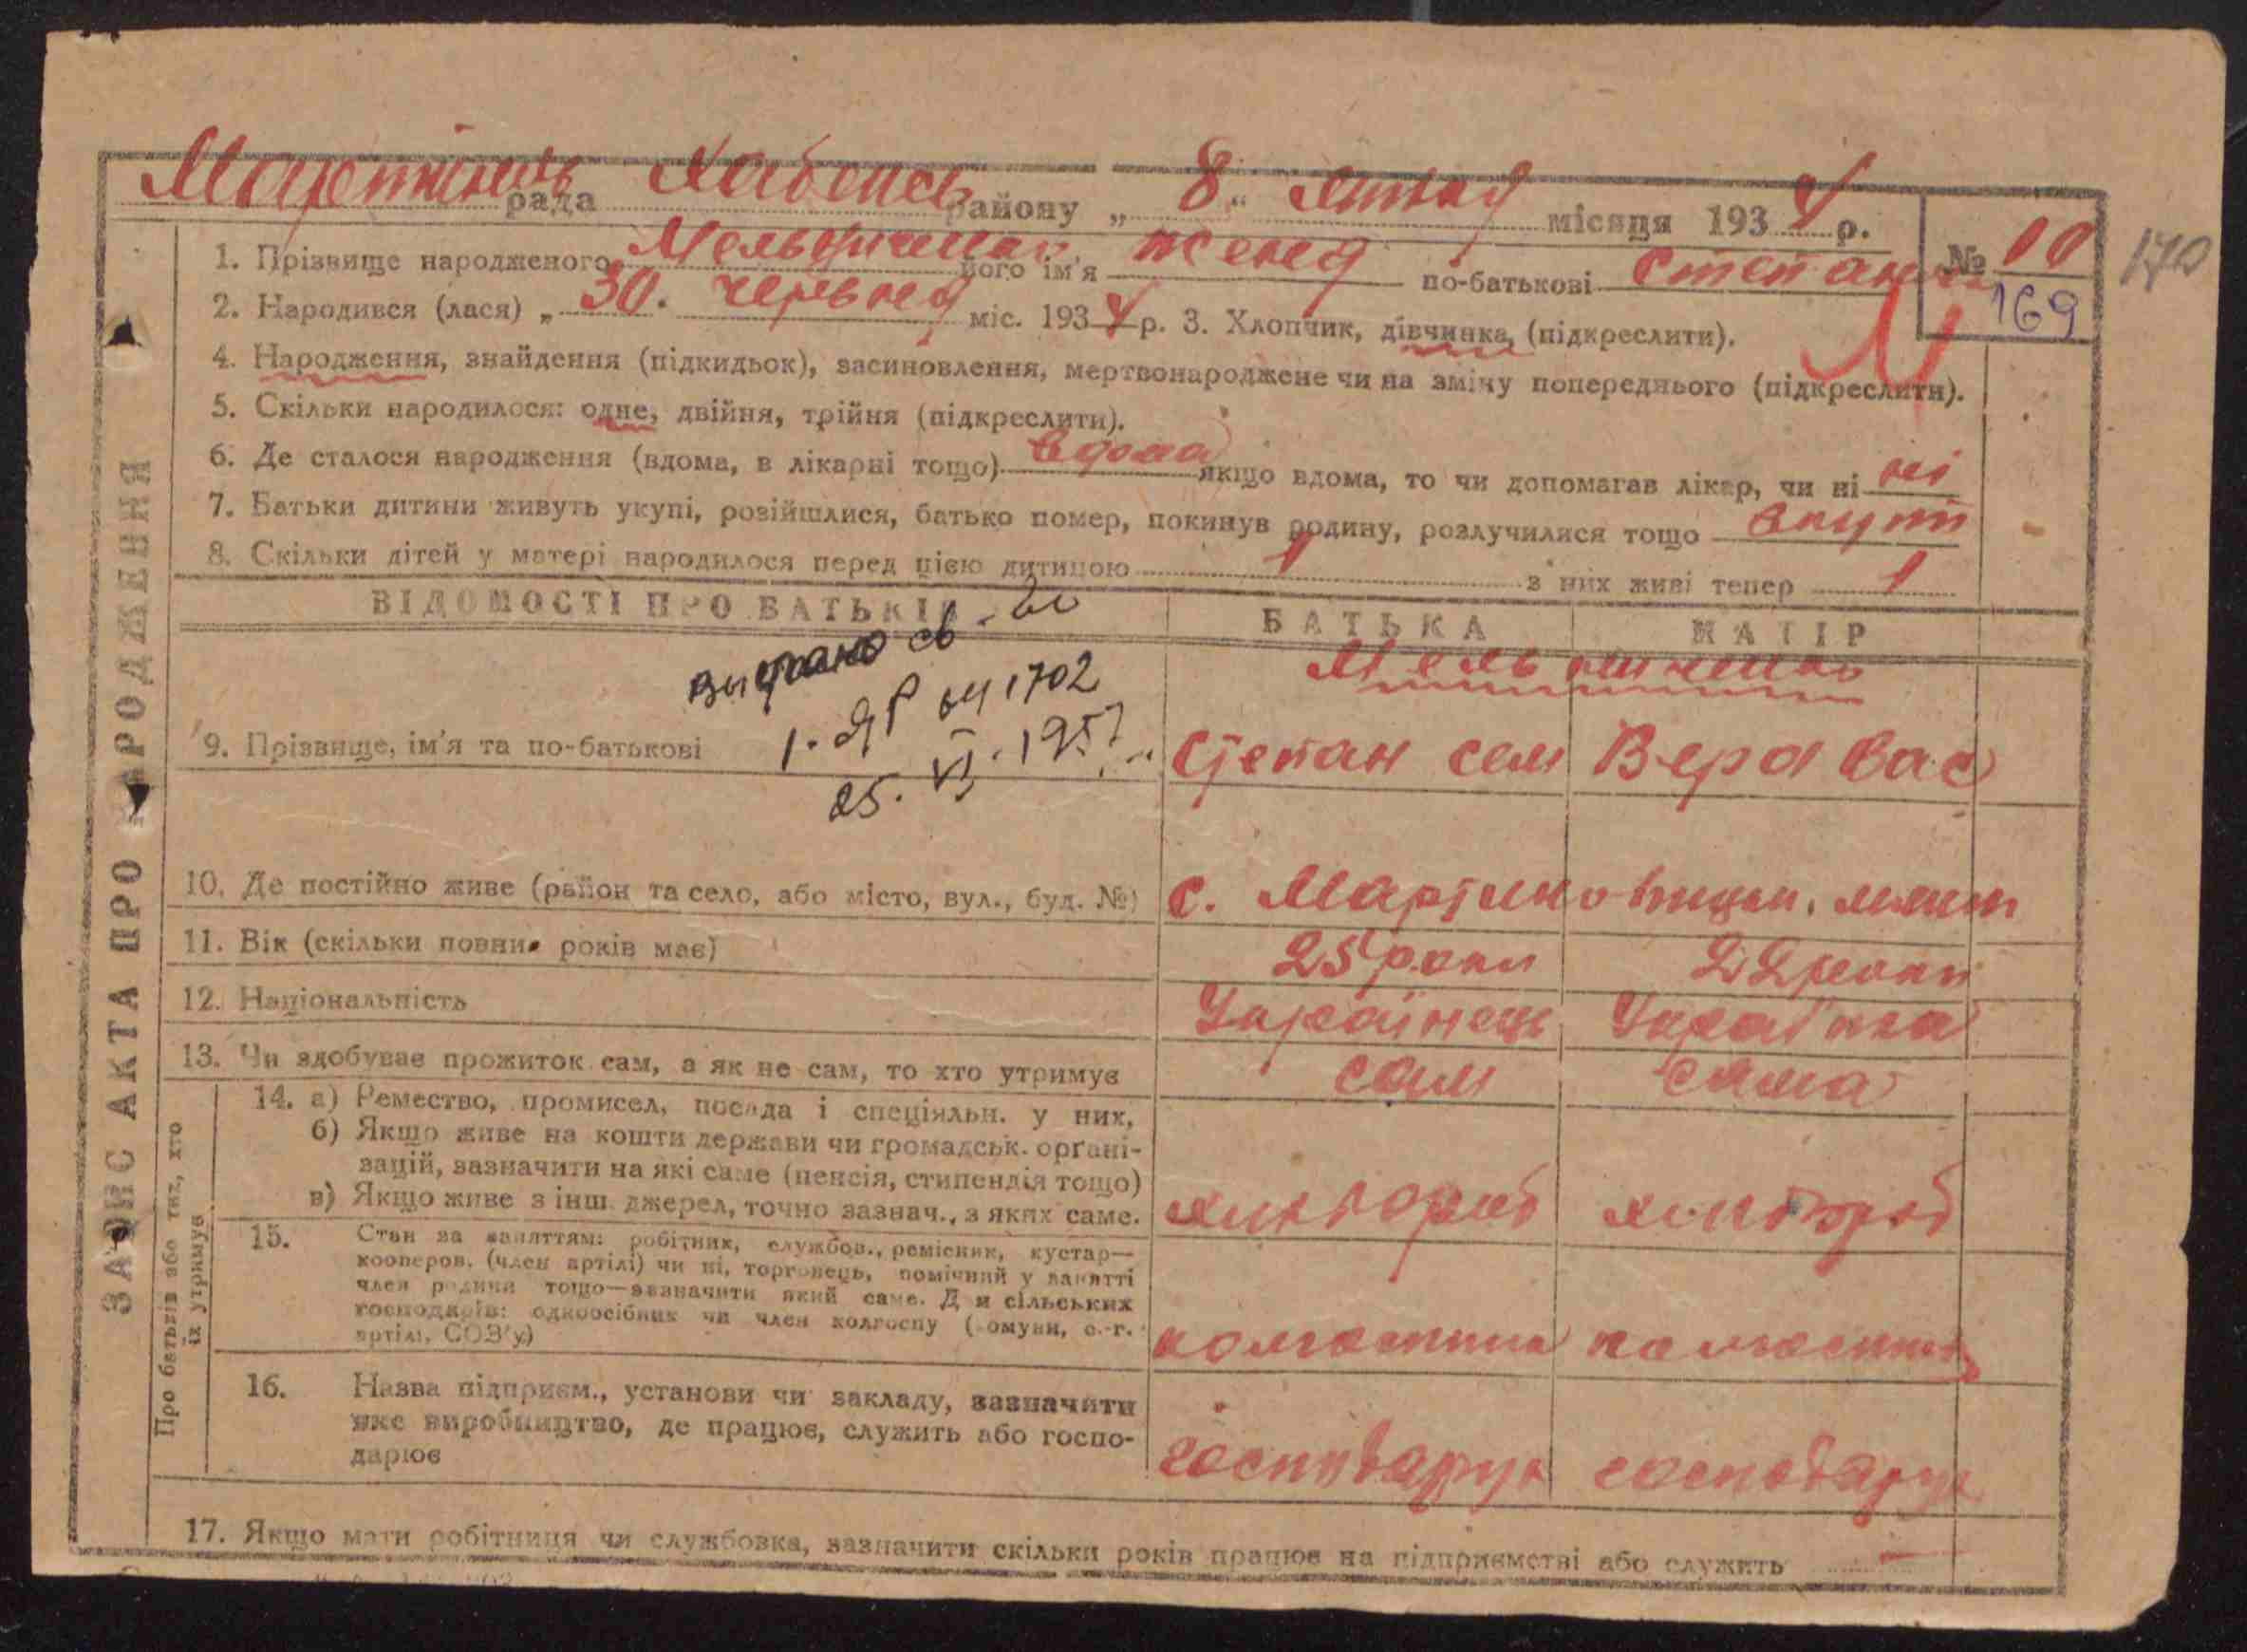 рада района „ 8 " липня місяця 1934 р.
№ 10
170
169
1. Прізвище народженого Мельниченко його ім'я Женя по-батькові Степан
2. Народився (лася) „ 30. червня міс. 1934 р. 3. Хлопчик, дівчинка, (підкреслити).
4. Народження, знайдення (підкидьок), засиновлення, мертвонароджене чи на зміну попереднього (підкреслити).
5. Скільки народилося: одне, двійня, трійня (підкреслити).
6. Де сталося народження (вдома, в лікарні тощо) вдома якщо вдома, то чи допомагав лікар, чи ні ні
7. Батьки дитини живуть укупі, розійшлися, батько помер, покинув родину, розлучилися тощо вкупі
8. Скільки дітей у матері народилося перед цією дитиною 1 з них живі тепер 1
ВІДОМОСТІ ПРО БАТЬКІВ БАТЬКА МАТІР
Мельниченко
выдано св-во
1-ЯР 641702
25. VI. 1957
9. Прізвище, ім'я та по-батькові Степан сем Вера Вас
10. Де постійно живе (район та село, або місто, вул., буд. №) с.
11. Вік (скільки повних років має) 25 роки 22 роки
12. Національність Українець Українка
13. Чи здобуває прожиток сам, а як не сам, то хто утримує сам сама
Про батьків або тих, хто
їх утримує
14. а) Ремество, промисел, посада і спеціяльн. у них,
б) Якщо живе на кошти держави чи громадськ. орґані-
зацій, зазначити на які саме (пенсія, стипендія тощо)
в) Якщо живе з інш. джерел, точно зазнач., з яких саме. хлібороб хлібороб
15. Стан за заняттям: робітник, службов., ремісник, кустар—
кооперов. (член артілі) чи ні, торговець, помічний у занятті
член родини тощо—зазначити який саме. Для сільських
господарів: одноосібник чи член колгоспу (комуни, с.-г.
артілі, СОЗ'у) колгоспник
16. Назва підприєм., установи чи закладу, зазначити
яке виробництво, де працює, служить або госпо-
дарює господарює господарює
17. Якщо мати робітниця чи службовка, зазначити скільки років працює на підприємстві або служить —
ЗАПИС АКТА ПРО НАРОДЖЕННЯ